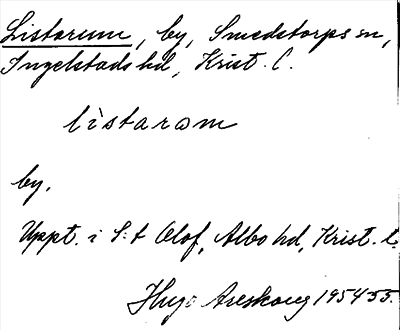 Listarum, by, Smedstorps sn,
Ingelstads hd, Krist. l.
lìstarəm
by.
Uppt. i S:t Olof, Albo hd, Krist. l.
Hugo Areskoug 1954-55.